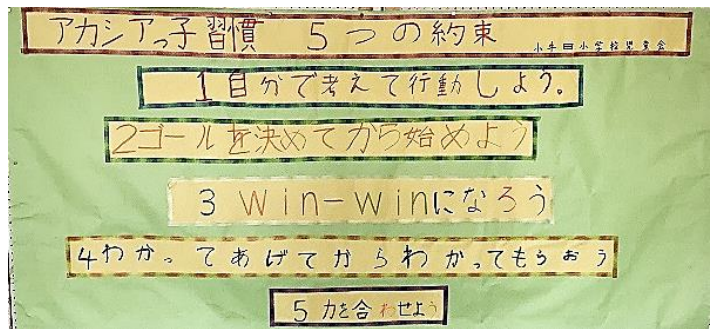 アカシアっ子習慣 5つの約束
小手田小学校児童会
1自分で考えて行動しよう。
2ゴールを決めてから始めよう
3 Win-Winになろう
4わかってあげてからわかってもらおう
5 力を合わせよう